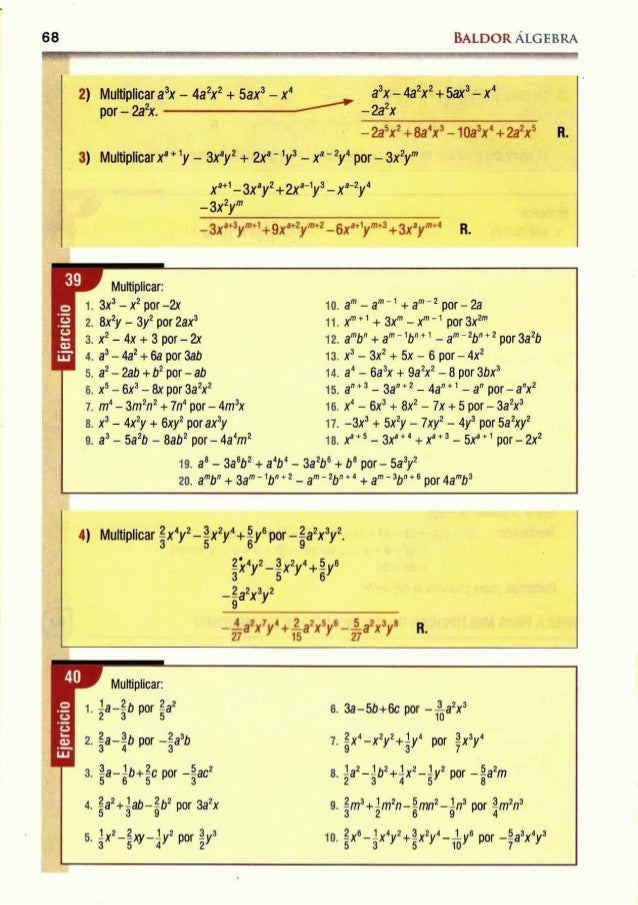 68 BALDOR ÁLGEBRA
2) Multiplicar a³x − 4a²x² + 5ax³ − x⁴
por − 2a²x.
a³x − 4a²x² + 5ax³ − x⁴
− 2a²x
− 2a⁵x² + 8a⁴x³ − 10a³x⁴ + 2a²x⁵ R.
3) Multiplicar xᵃ⁺¹y − 3xᵃy² + 2xᵃ⁻¹y³ − xᵃ⁻²y⁴ por − 3x²yᵐ
xᵃ⁺¹ − 3xᵃy² + 2xᵃ⁻¹y³ − xᵃ⁻²y⁴
− 3x²yᵐ
− 3xᵃ⁺³yᵐ⁺¹ + 9xᵃ⁺²yᵐ⁺² − 6xᵃ⁺¹yᵐ⁺³ + 3xᵃyᵐ⁺⁴ R.
39
Ejercicio
Multiplicar:
1. 3x³ − x² por −2x
2. 8x²y − 3y² por 2ax³
3. x² − 4x + 3 por − 2x
4. a³ − 4a² + 6a por 3ab
5. a² − 2ab + b² por − ab
6. x⁵ − 6x³ − 8x por 3a²x²
7. m⁴ − 3m²n² + 7n⁴ por − 4m³x
8. x³ − 4x²y + 6xy² por ax³y
9. a³ − 5a²b − 8ab² por − 4a⁴m²
10. aᵐ − aᵐ⁻¹ + aᵐ⁻² por − 2a
11. xᵐ⁺¹ + 3xᵐ − xᵐ⁻¹ por 3x²ᵐ
12. aᵐbⁿ + aᵐ⁻¹bⁿ⁺¹ − aᵐ⁻²bⁿ⁺² por 3a²b
13. x³ − 3x² + 5x − 6 por − 4x²
14. a⁴ − 6a³x + 9a²x² − 8 por 3bx³
15. aⁿ⁺³ − 3aⁿ⁺² − 4aⁿ⁺¹ − aⁿ por − aⁿx²
16. x⁴ − 6x³ + 8x² − 7x + 5 por − 3a²x³
17. −3x³ + 5x²y − 7xy² − 4y³ por 5a²xy²
18. xᵃ⁺⁵ − 3xᵃ⁺⁴ + xᵃ⁺³ − 5xᵃ⁺¹ por − 2x²
19. a⁸ − 3a⁶b² + a⁴b⁴ − 3a²b⁶ + b⁸ por − 5a³y²
20. aᵐbⁿ + 3aᵐ⁻¹bⁿ⁺² − aᵐ⁻²bⁿ⁺⁴ + aᵐ⁻³bⁿ⁺⁶ por 4aᵐb³
4) Multiplicar 2/3 x⁴y² − 3/5 x²y⁴ + 5/6 y⁶ por − 2/9 a²x³y².
2/3 x⁴y² − 3/5 x²y⁴ + 5/6 y⁶
− 2/9 a²x³y²
− 4/27 a²x⁷y⁴ + 2/15 a²x⁵y⁶ − 5/27 a²x³y⁸ R.
40
Ejercicio
Multiplicar:
1. 1/2 a − 2/3 b por 2/5 a²
2. 2/3 a − 3/4 b por − 2/3 a³b
3. 3/5 a − 1/6 b + 2/5 c por − 5/3 ac²
4. 2/5 a² + 1/3 ab − 2/9 b² por 3a²x
5. 1/3 x² − 2/5 xy − 1/4 y² por 3/2 y³
6. 3a − 5b + 6c por − 3/10 a²x³
7. 2/9 x⁴ − x²y² + 1/3 y⁴ por 3/7 x³y⁴
8. 1/2 a² − 1/3 b² + 1/4 x² − 1/5 y² por − 5/8 a²m
9. 2/3 m³ + 1/2 m²n − 5/6 mn² − 1/9 n³ por 3/4 m²n³
10. 2/5 x⁶ − 1/3 x⁴y² + 3/5 x²y⁴ − 1/10 y⁶ por − 5/7 a³x⁴y³